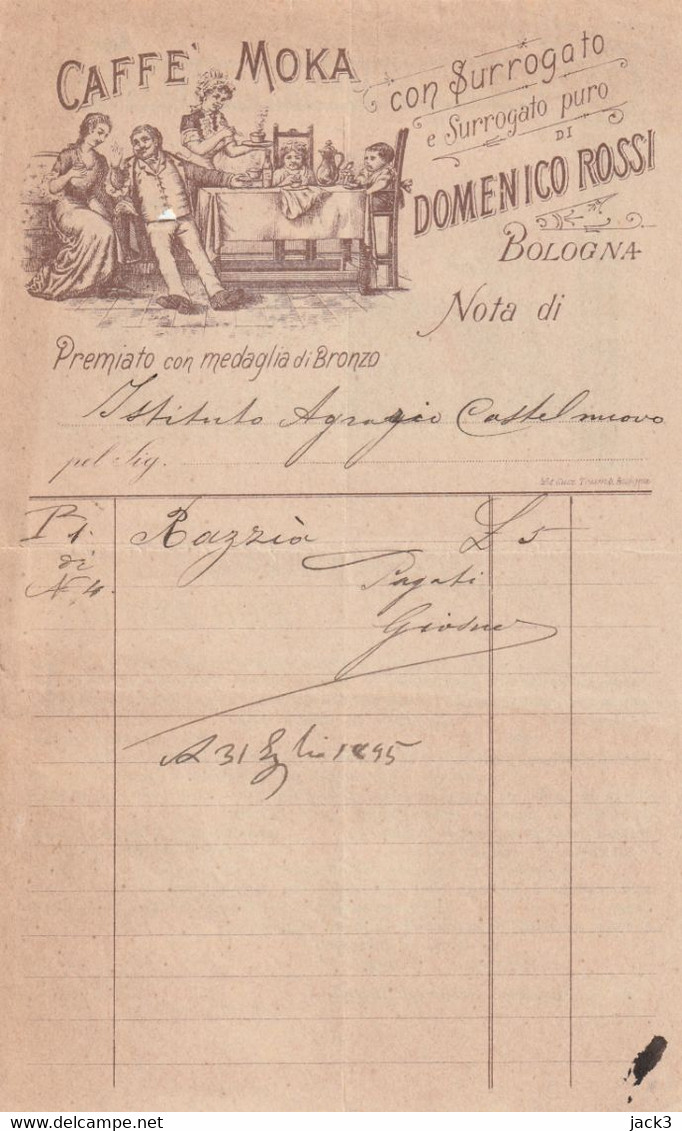 CAFFE' MOKA
con Surrogato
e Surrogato puro
DI
DOMENICO ROSSI
BOLOGNA
Nota di
Premiato con medaglia di Bronzo
Istituto Agrario Castelnuovo
pel Sig.
Razzia £ 5
di
N 4.
Pagati
A 31 Luglio 1895
jack3
delcampe.net